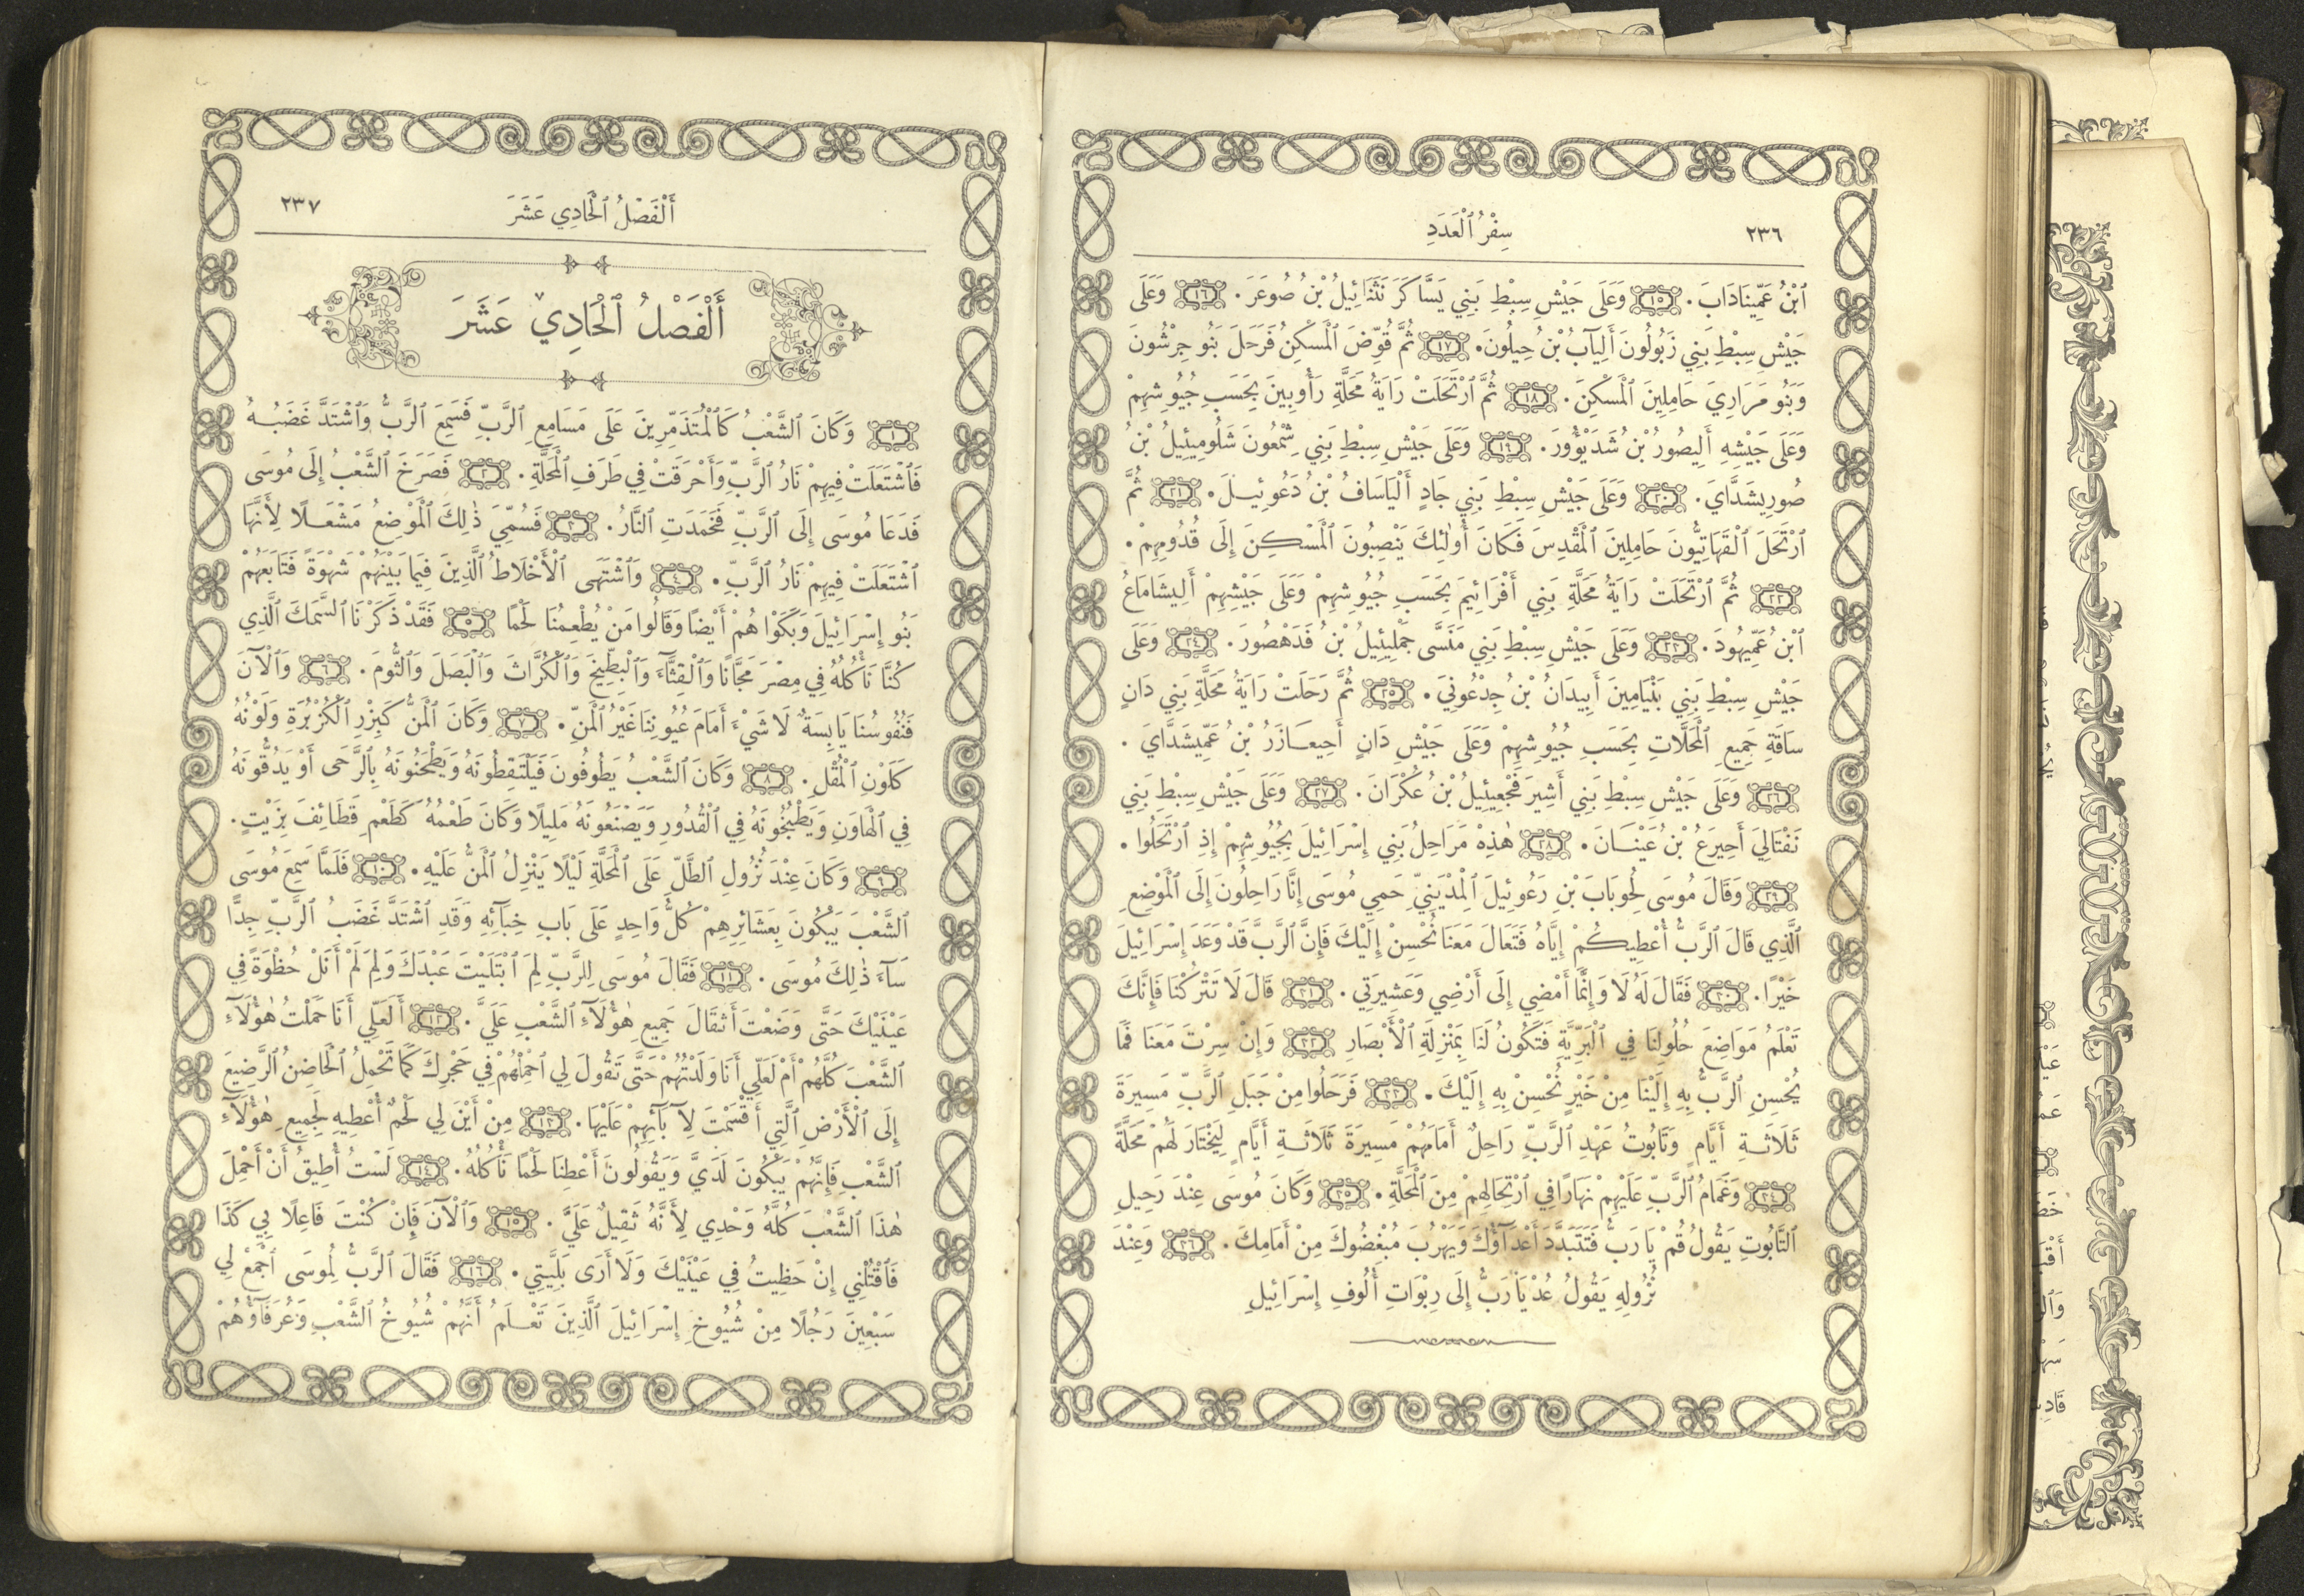 ٢٣٦ سِفْرُ ٱلْعَدَدِ
ٱبْنُ عَمِّينَادَابَ. ١٥ وَعَلَى جَيْشِ سِبْطِ بَنِي يَسَّاكَرَ نَثَنَائِيلُ بْنُ صُوعَرَ. ١٦ وَعَلَى
جَيْشِ سِبْطِ بَنِي زَبُولُونَ أَلِيآبُ بْنُ حِيلُونَ. ١٧ ثُمَّ قُوِّضَ ٱلْمَسْكِنُ فَرَحَلَ بَنُو جِرْشُونَ
وَبَنُو مَرَارِيَ حَامِلِينَ ٱلْمَسْكِنَ. ١٨ ثُمَّ ٱرْتَحَلَتْ رَايَةُ مَحَلَّةِ رَأُوبِينَ بِحَسَبِ جُيُوشِهِمْ
وَعَلَى جَيْشِهِ أَلِيصُورُ بْنُ شَدَيْؤُورَ. ١٩ وَعَلَى جَيْشِ سِبْطِ بَنِي شِمْعُونَ شَلُومِيئِيلُ بْنُ
صُورِيشَدَّايَ. ٢٠ وَعَلَى جَيْشِ سِبْطِ بَنِي جَادٍ أَلْيَاسَافُ بْنُ دَعُوئِيلَ. ٢١ ثُمَّ
ٱرْتَحَلَ ٱلْقَهَاتِيُّونَ حَامِلِينَ ٱلْمَقْدِسَ فَكَانَ أُولٰئِكَ يَنْصِبُونَ ٱلْمَسْكِنَ إِلَى قُدُومِهِمْ.
٢٢ ثُمَّ ٱرْتَحَلَتْ رَايَةُ مَحَلَّةِ بَنِي أَفْرَائِيمَ بِحَسَبِ جُيُوشِهِمْ وَعَلَى جَيْشِهِمْ أَلِيشَامَاعُ
ٱبْنُ عَمِّيهُودَ. ٢٣ وَعَلَى جَيْشِ سِبْطِ بَنِي مَنَسَّى جَمْلِيئِيلُ بْنُ فَدَهْصُورَ. ٢٤ وَعَلَى
جَيْشِ سِبْطِ بَنِي بَنْيَامِينَ أَبِيدَانُ بْنُ جِدْعُونِيَ. ٢٥ ثُمَّ رَحَلَتْ رَايَةُ مَحَلَّةِ بَنِي دَانٍ
سَاقَةِ جَمِيعِ ٱلْمَحَلَّاتِ بِحَسَبِ جُيُوشِهِمْ وَعَلَى جَيْشِ دَانٍ أَحِيعَازَرُ بْنُ عَمِّيشَدَّايَ.
٢٦ وَعَلَى جَيْشِ سِبْطِ بَنِي أَشِيرَ فَجْعِيئِيلُ بْنُ عُكْرَانَ. ٢٧ وَعَلَى جَيْشِ سِبْطِ بَنِي
نَفْتَالِيَ أَحِيرَعُ بْنُ عَيْنَانَ. ٢٨ هٰذِهْ مَرَاحِلُ بَنِي إِسْرَائِيلَ بِجُيُوشِهِمْ إِذِ ٱرْتَحَلُوا.
٢٩ وَقَالَ مُوسَى لِحُوبَابَ بْنِ رَعُوئِيلَ ٱلْمِدْيَنِيِّ حَمِي مُوسَى إِنَّا رَاحِلُونَ إِلَى ٱلْمَوْضِعِ
ٱلَّذِي قَالَ ٱلرَّبُّ أُعْطِيكُمْ إِيَّاهُ فَتَعَالَ مَعَنَا نُحْسِنْ إِلَيْكَ فَإِنَّ ٱلرَّبَّ قَدْ وَعَدَ إِسْرَائِيلَ
خَيْرًا. ٣٠ فَقَالَ لَهُ لَا وَإِنَّمَا أَمْضِي إِلَى أَرْضِي وَعَشِيرَتِي. ٣١ قَالَ لَا تَتْرُكْنَا فَإِنَّكَ
تَعْلَمُ مَوَاضِعَ حُلُولِنَا فِي ٱلْبَرِّيَّةِ فَتَكُونُ لَنَا بِمَنْزِلَةِ ٱلْأَبْصَارِ ٣٢ وَإِنْ سِرْتَ مَعَنَا فَمَا
يُحْسِنِ ٱلرَّبُّ بِهِ إِلَيْنَا مِنْ خَيْرٍ نُحْسِنْ بِهِ إِلَيْكَ. ٣٣ فَرَحَلُوا مِنْ جَبَلِ ٱلرَّبِّ مَسِيرَةَ
ثَلَاثَةِ أَيَّامٍ وَتَابُوتُ عَهْدِ ٱلرَّبِّ رَاحِلٌ أَمَامَهُمْ مَسِيرَةَ ثَلَاثَةِ أَيَّامٍ لِيَخْتَارَ لَهُمْ مَحَلَّةً
٣٤ وَغَمَامُ ٱلرَّبِّ عَلَيْهِمْ نَهَارًا فِي ٱرْتِحَالِهِمْ مِنَ ٱلْمَحَلَّةِ. ٣٥ وَكَانَ مُوسَى عِنْدَ رَحِيلِ
ٱلتَّابُوتِ يَقُولُ قُمْ يَا رَبُّ فَتَتَبَدَّدَ أَعْدَآؤُكَ وَيَهْرُبَ مُبْغِضُوكَ مِنْ أَمَامِكَ. ٣٦ وَعِنْدَ
نُزُولِهِ يَقُولُ عُدْ يَا رَبُّ إِلَى رِبْوَاتِ أُلُوفِ إِسْرَائِيلَ
أَلْفَصْلُ ٱلْحَادِي عَشَرَ ٢٣٧
أَلْفَصْلُ ٱلْحَادِي عَشَرَ
١ وَكَانَ ٱلشَّعْبُ كَٱلْمُتَذَمِّرِينَ عَلَى مَسَامِعِ ٱلرَّبِّ فَسَمِعَ ٱلرَّبُّ وَٱشْتَدَّ غَضَبُهُ
فَٱشْتَعَلَتْ فِيهِمْ نَارُ ٱلرَّبِّ وَأَحْرَقَتْ فِي طَرَفِ ٱلْمَحَلَّةِ. ٢ فَصَرَخَ ٱلشَّعْبُ إِلَى مُوسَى
فَدَعَا مُوسَى إِلَى ٱلرَّبِّ فَخَمَدَتِ ٱلنَّارُ. ٣ فَسُمِّيَ ذٰلِكَ ٱلْمَوْضِعُ مَشْعَلًا لِأَنَّهَا
ٱشْتَعَلَتْ فِيهِمْ نَارُ ٱلرَّبِّ. ٤ وَٱشْتَهَى ٱلْأَخْلَاطُ ٱلَّذِينَ فِيمَا بَيْنَهُمْ شَهْوَةً فَتَابَعَهُمْ
بَنُو إِسْرَائِيلَ وَبَكَوْا هُمْ أَيْضًا وَقَالُوا مَنْ يُطْعِمُنَا لَحْمًا ٥ فَقَدْ ذَكَرْنَا ٱلسَّمَكَ ٱلَّذِي
كُنَّا نَأْكُلُهُ فِي مِصْرَ مَجَّانًا وَٱلْقِثَّآءَ وَٱلْبِطِّيخَ وَٱلْكُرَّاثَ وَٱلْبَصَلَ وَٱلثُّومَ. ٦ وَٱلْآنَ
فَنُفُوسُنَا يَابِسَةٌ لَا شَيْءَ أَمَامَ عُيُونِنَا غَيْرُ ٱلْمَنِّ. ٧ وَكَانَ ٱلْمَنُّ كَبِزْرِ ٱلْكُزْبُرَةِ وَلَوْنُهُ
كَلَوْنِ ٱلْمُقْلِ. ٨ وَكَانَ ٱلشَّعْبُ يَطُوفُونَ فَيَلْتَقِطُونَهُ وَيَطْحَنُونَهُ بِٱلرَّحَى أَوْ يَدُقُّونَهُ
فِي ٱلْهَاوَنِ وَيَطْبُخُونَهُ فِي ٱلْقُدُورِ وَيَصْنَعُونَهُ مَلِيلًا وَكَانَ طَعْمُهُ كَطَعْمِ قَطَائِفَ بِزَيْتٍ.
٩ وَكَانَ عِنْدَ نُزُولِ ٱلطَّلِّ عَلَى ٱلْمَحَلَّةِ لَيْلًا يَنْزِلُ ٱلْمَنُّ عَلَيْهِ. ١٠ فَلَمَّا سَمِعَ مُوسَى
ٱلشَّعْبَ يَبْكُونَ بِعَشَائِرِهِمْ كُلُّ وَاحِدٍ عَلَى بَابِ خِبَآئِهِ وَقَدِ ٱشْتَدَّ غَضَبُ ٱلرَّبِّ جِدًّا
سَآءَ ذٰلِكَ مُوسَى. ١١ فَقَالَ مُوسَى لِلرَّبِّ لِمَ ٱبْتَلَيْتَ عَبْدَكَ وَلِمَ لَمْ أَنَلْ حُظْوَةً فِي
عَيْنَيْكَ حَتَّى وَضَعْتَ أَثْقَالَ جَمِيعِ هٰؤُلَآءِ ٱلشَّعْبِ عَلَيَّ. ١٢ أَلَعَلِّي أَنَا حَمَلْتُ هٰؤُلَآءِ
ٱلشَّعْبَ كُلَّهُمْ أَمْ لَعَلِّي أَنَا وَلَدْتُهُمْ حَتَّى تَقُولَ لِي ٱحْمِلْهُمْ فِي حَجْرِكَ كَمَا تَحْمِلُ ٱلْحَاضِنُ ٱلرَّضِيعَ
إِلَى ٱلْأَرْضِ ٱلَّتِي أَقْسَمْتَ لِآبَآئِهِمْ عَلَيْهَا. ١٣ مِنْ أَيْنَ لِي لَحْمٌ أُعْطِيهِ لِجَمِيعِ هٰؤُلَآءِ
ٱلشَّعْبِ فَإِنَّهُمْ يَبْكُونَ لَدَيَّ وَيَقُولُونَ أَعْطِنَا لَحْمًا نَأْكُلُهُ. ١٤ لَسْتُ أُطِيقُ أَنْ أَحْمِلَ
هٰذَا ٱلشَّعْبَ كُلَّهُ وَحْدِي لِأَنَّهُ ثَقِيلٌ عَلَيَّ. ١٥ وَٱلْآنَ فَإِنْ كُنْتَ فَاعِلًا بِي كَذَا
فَٱقْتُلْنِي إِنْ حَظِيتُ فِي عَيْنَيْكَ وَلَا أَرَى بَلِيَّتِي. ١٦ فَقَالَ ٱلرَّبُّ لِمُوسَى ٱجْمَعْ لِي
سَبْعِينَ رَجُلًا مِنْ شُيُوخِ إِسْرَائِيلَ ٱلَّذِينَ تَعْلَمُ أَنَّهُمْ شُيُوخُ ٱلشَّعْبِ وَعُرَفَآؤُهُمْ